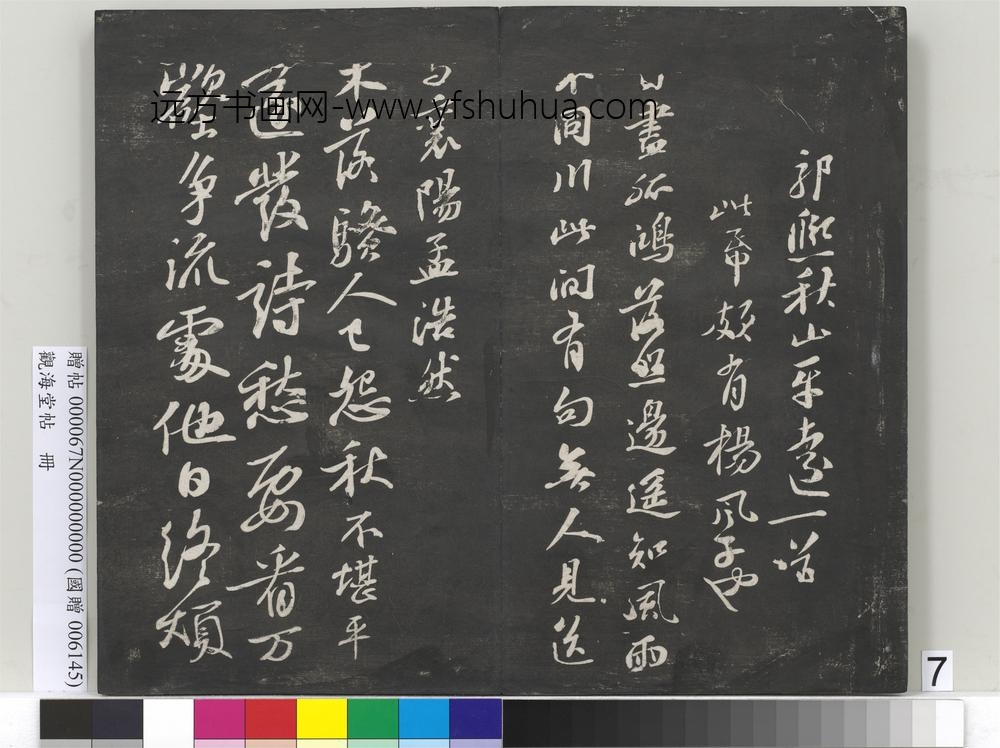 郭熙秋山平遠一首
此帋頗有楊風子也
目盡孤鴻落照邊遥知風雨
不同川此间有句無人見送
与襄陽孟浩然
木落騷人已怨秋不堪平
遠發詩愁要看万
壑争流處他日終煩
远方书画网-www.yfshuhua.com
贈帖 000067N000000000 (國贈 006145)
觀海堂帖 冊
7